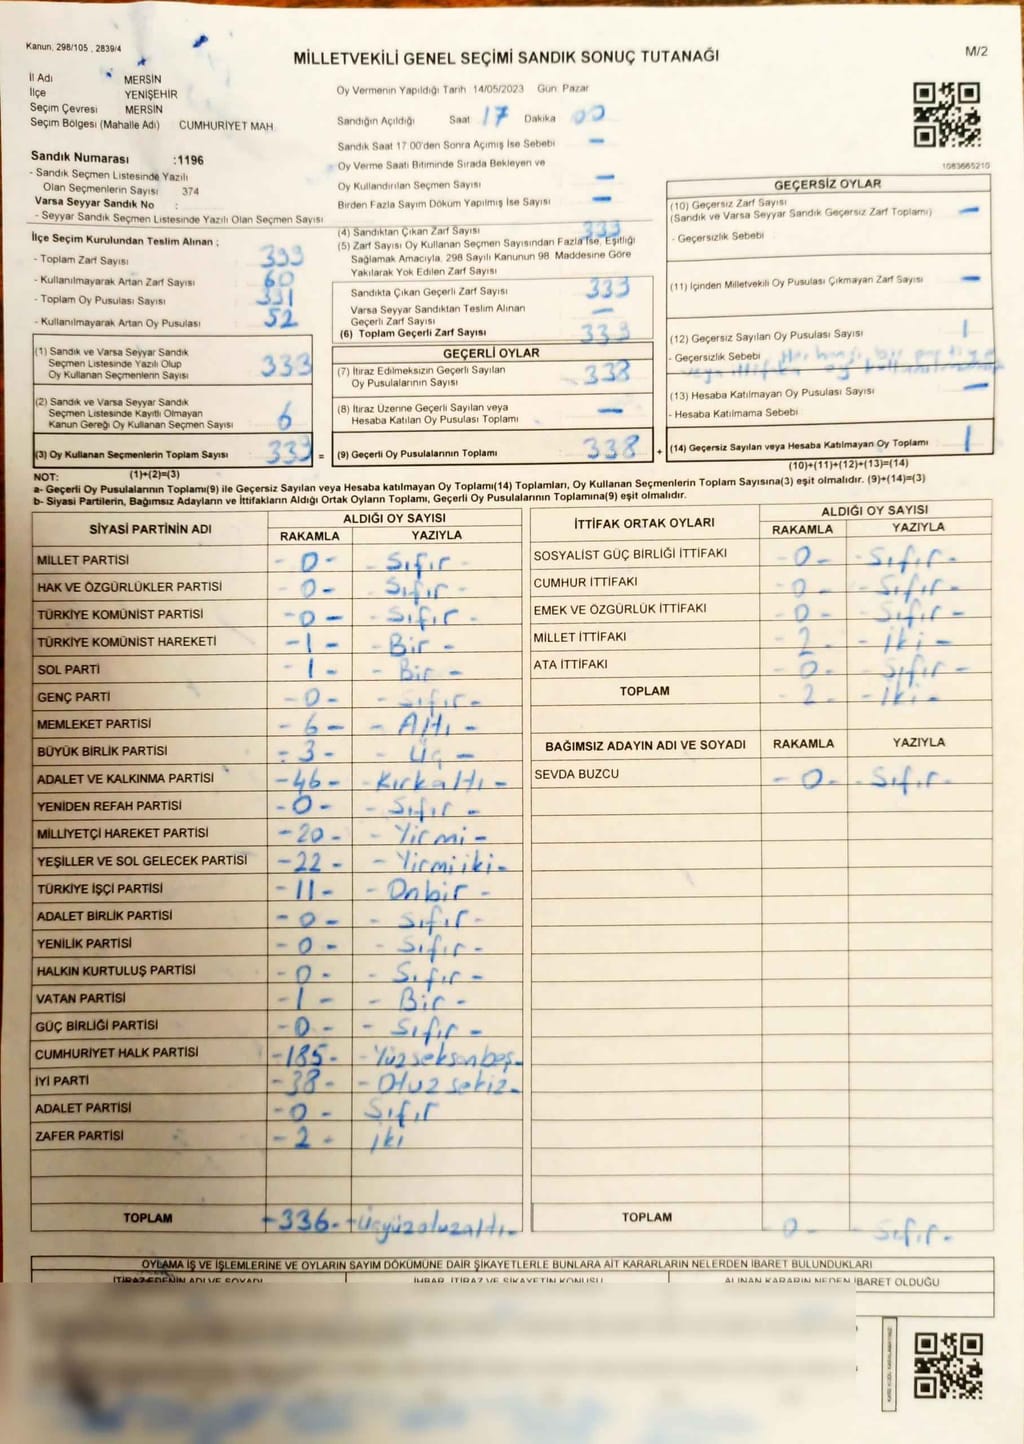 Kanun, 298/105 , 2839/4
MİLLETVEKİLİ GENEL SEÇİMİ SANDIK SONUÇ TUTANAĞI
M/2
İl Adı MERSİN
İlçe YENİŞEHİR
Seçim Çevresi MERSİN
Seçim Bölgesi (Mahalle Adı) CUMHURİYET MAH
Sandık Numarası :1196
- Sandık Seçmen Listesinde Yazılı
Olan Seçmenlerin Sayısı 374
Varsa Seyyar Sandık No :
- Seyyar Sandık Seçmen Listesinde Yazılı Olan Seçmen Sayısı
Oy Vermenin Yapıldığı Tarih 14/05/2023 Gün Pazar
Sandığın Açıldığı Saat 17 Dakika 00
Sandık Saat 17 00'den Sonra Açımış İse Sebebi -
Oy Verme Saati Bitiminde Sırada Bekleyen ve
Oy Kullandırılan Seçmen Sayısı -
Birden Fazla Sayım Döküm Yapılmış İse Sayısı -
1083665210
İlçe Seçim Kurulundan Teslim Alınan ;
- Toplam Zarf Sayısı
- Kullanılmayarak Artan Zarf Sayısı 60
- Toplam Oy Pusulası Sayısı
- Kullanılmayarak Artan Oy Pusulası 52
(1) Sandık ve Varsa Seyyar Sandık
Seçmen Listesinde Yazılı Olup
Oy Kullanan Seçmenlerin Sayısı 333
(2) Sandık ve Varsa Seyyar Sandık
Seçmen Listesinde Kayıtlı Olmayan
Kanun Gereği Oy Kullanan Seçmen Sayısı 6
(3) Oy Kullanan Seçmenlerin Toplam Sayısı =
(1)+(2)=(3)
(4) Sandıktan Çıkan Zarf Sayısı
(5) Zarf Sayısı Oy Kullanan Seçmen Sayısından Fazla İse, Eşitliği
Sağlamak Amacıyla, 298 Sayılı Kanunun 98 Maddesine Göre
Yakılarak Yok Edilen Zarf Sayısı
Sandıkta Çıkan Geçerli Zarf Sayısı
Varsa Seyyar Sandıktan Teslim Alınan
Geçerli Zarf Sayısı -
(6) Toplam Geçerli Zarf Sayısı
GEÇERLİ OYLAR
(7) İtiraz Edilmeksizin Geçerli Sayılan
Oy Pusulalarının Sayısı 338
(8) İtiraz Üzerine Geçerli Sayılan veya
Hesaba Katılan Oy Pusulası Toplamı -
(9) Geçerli Oy Pusulalarının Toplamı 338 +
GEÇERSİZ OYLAR
(10) Geçersiz Zarf Sayısı -
(Sandık ve Varsa Seyyar Sandık Geçersiz Zarf Toplamı)
- Geçersizlik Sebebi
(11) İçinden Milletvekili Oy Pusulası Çıkmayan Zarf Sayısı -
(12) Geçersiz Sayılan Oy Pusulası Sayısı 1
- Geçersizlik Sebebi Herhangi bir partiye
veya ittifaka oy
(13) Hesaba Katılmayan Oy Pusulası Sayısı -
- Hesaba Katılmama Sebebi
(14) Geçersiz Sayılan veya Hesaba Katılmayan Oy Toplamı 1
(10)+(11)+(12)+(13)=(14)
NOT:
a- Geçerli Oy Pusulalarının Toplamı(9) ile Geçersiz Sayılan veya Hesaba katılmayan Oy Toplamı(14) Toplamları, Oy Kullanan Seçmenlerin Toplam Sayısına(3) eşit olmalıdır. (9)+(14)=(3)
b- Siyasi Partilerin, Bağımsız Adayların ve İttifakların Aldığı Ortak Oyların Toplamı, Geçerli Oy Pusulalarının Toplamına(9) eşit olmalıdır.
SİYASİ PARTİNİN ADI ALDIĞI OY SAYISI
RAKAMLA YAZIYLA
MİLLET PARTİSİ - 0 - - Sıfır -
HAK VE ÖZGÜRLÜKLER PARTİSİ - 0 - - Sıfır -
TÜRKİYE KOMÜNİST PARTİSİ - 0 - - Sıfır -
TÜRKİYE KOMÜNİST HAREKETİ - 1 - - Bir -
SOL PARTİ - 1 - - Bir -
GENÇ PARTİ - 0 - - Sıfır -
MEMLEKET PARTİSİ - 6 - - Altı -
BÜYÜK BİRLİK PARTİSİ - 3 - - Üç -
ADALET VE KALKINMA PARTİSİ - 46 - - Kırkaltı -
YENİDEN REFAH PARTİSİ - 0 - - Sıfır -
MİLLİYETÇİ HAREKET PARTİSİ - 20 - - Yirmi -
YEŞİLLER VE SOL GELECEK PARTİSİ - 22 - - Yirmiiki -
TÜRKİYE İŞÇİ PARTİSİ - 11 - - Onbir -
ADALET BİRLİK PARTİSİ - 0 - - Sıfır -
YENİLİK PARTİSİ - 0 - - Sıfır -
HALKIN KURTULUŞ PARTİSİ - 0 - - Sıfır -
VATAN PARTİSİ - 1 - - Bir -
GÜÇ BİRLİĞİ PARTİSİ - 0 - - Sıfır -
CUMHURİYET HALK PARTİSİ - 185 - - Yüzseksenbeş -
İYİ PARTİ - 38 - - Otuzsekiz -
ADALET PARTİSİ - 0 - Sıfır
ZAFER PARTİSİ - 2 - iki
TOPLAM - 336 - - Üçyüzotuzaltı -
İTTİFAK ORTAK OYLARI ALDIĞI OY SAYISI
RAKAMLA YAZIYLA
SOSYALİST GÜÇ BİRLİĞİ İTTİFAKI - 0 - - Sıfır -
CUMHUR İTTİFAKI - 0 - - Sıfır -
EMEK VE ÖZGÜRLÜK İTTİFAKI - 0 - - Sıfır -
MİLLET İTTİFAKI - 2 - - İki -
ATA İTTİFAKI - 0 - - Sıfır -
TOPLAM - 2 - - İki -
BAĞIMSIZ ADAYIN ADI VE SOYADI RAKAMLA YAZIYLA
SEVDA BUZCU - 0 - - Sıfır -
TOPLAM - 0 - - Sıfır -
OYLAMA İŞ VE İŞLEMLERİNE VE OYLARIN SAYIM DÖKÜMÜNE DAİR ŞİKAYETLERLE BUNLARA AİT KARARLARIN NELERDEN İBARET BULUNDUKLARI
İTİRAZ EDENİN ADI VE SOYADI İHBAR, İTİRAZ VE ŞİKAYETİN KONUSU ALINAN KARARIN NEDEN İBARET OLDUĞU